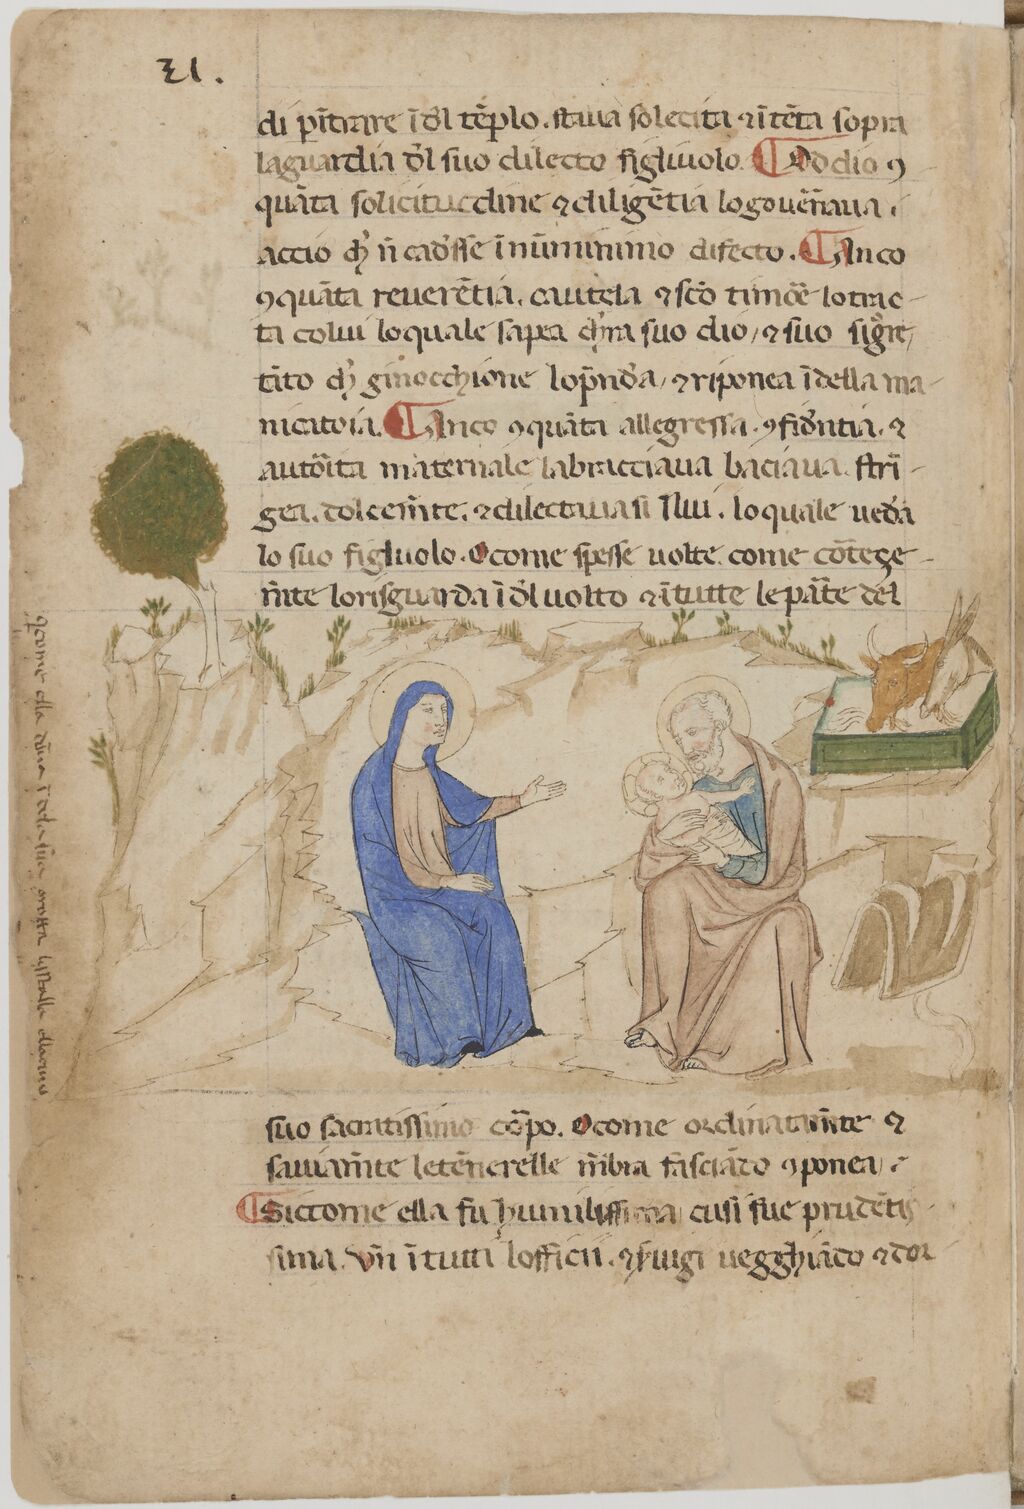 31.
di pīt̄rare īd̄l tēplo. staua solecita ⁊ ītēta sopra
laguardia d̄l suo dilecto figliuolo. ¶ O dio ꝯ
quāta solicituddine ⁊ diligētia logou̅naua
accio ch̄ n̄ cad̄sse īnūminimo difecto. ¶ Anco
ꝯquāta reuerētia. cautela ⁊ sc̄o timōe lotrac-
ta colui loquale sapea ch̄ra suo dio / ⁊ suo signͦre /
tāto ch̄ ginocchione lop̄nd̄a / ⁊ riponea īdella ma-
nicatoia. ¶ Anco ꝯquāta allegressa. ꝯfid̄ntia. ⁊
autōita maternale labracciaua baciaua. strī-
gea. dolcem̄te. ⁊ dilectauasi ī lui. loquale ued̄a
lo suo figluolo. O come spesse uolte. come cōtege-
m̄te lorisguarda īd̄l uolto ⁊ ītutte lepār̄te del
suo sacratissimo cōrpo. O come ordinatam̄te ⁊
sauiam̄te letēnerelle m̄bra fasciādo ꝯponea /
¶ Siccome ella fu humilissima cusi fue prudētis-
sima. Vn̄ ītutti lofficii. ⁊ seruigi uegghiādo ⁊ dor